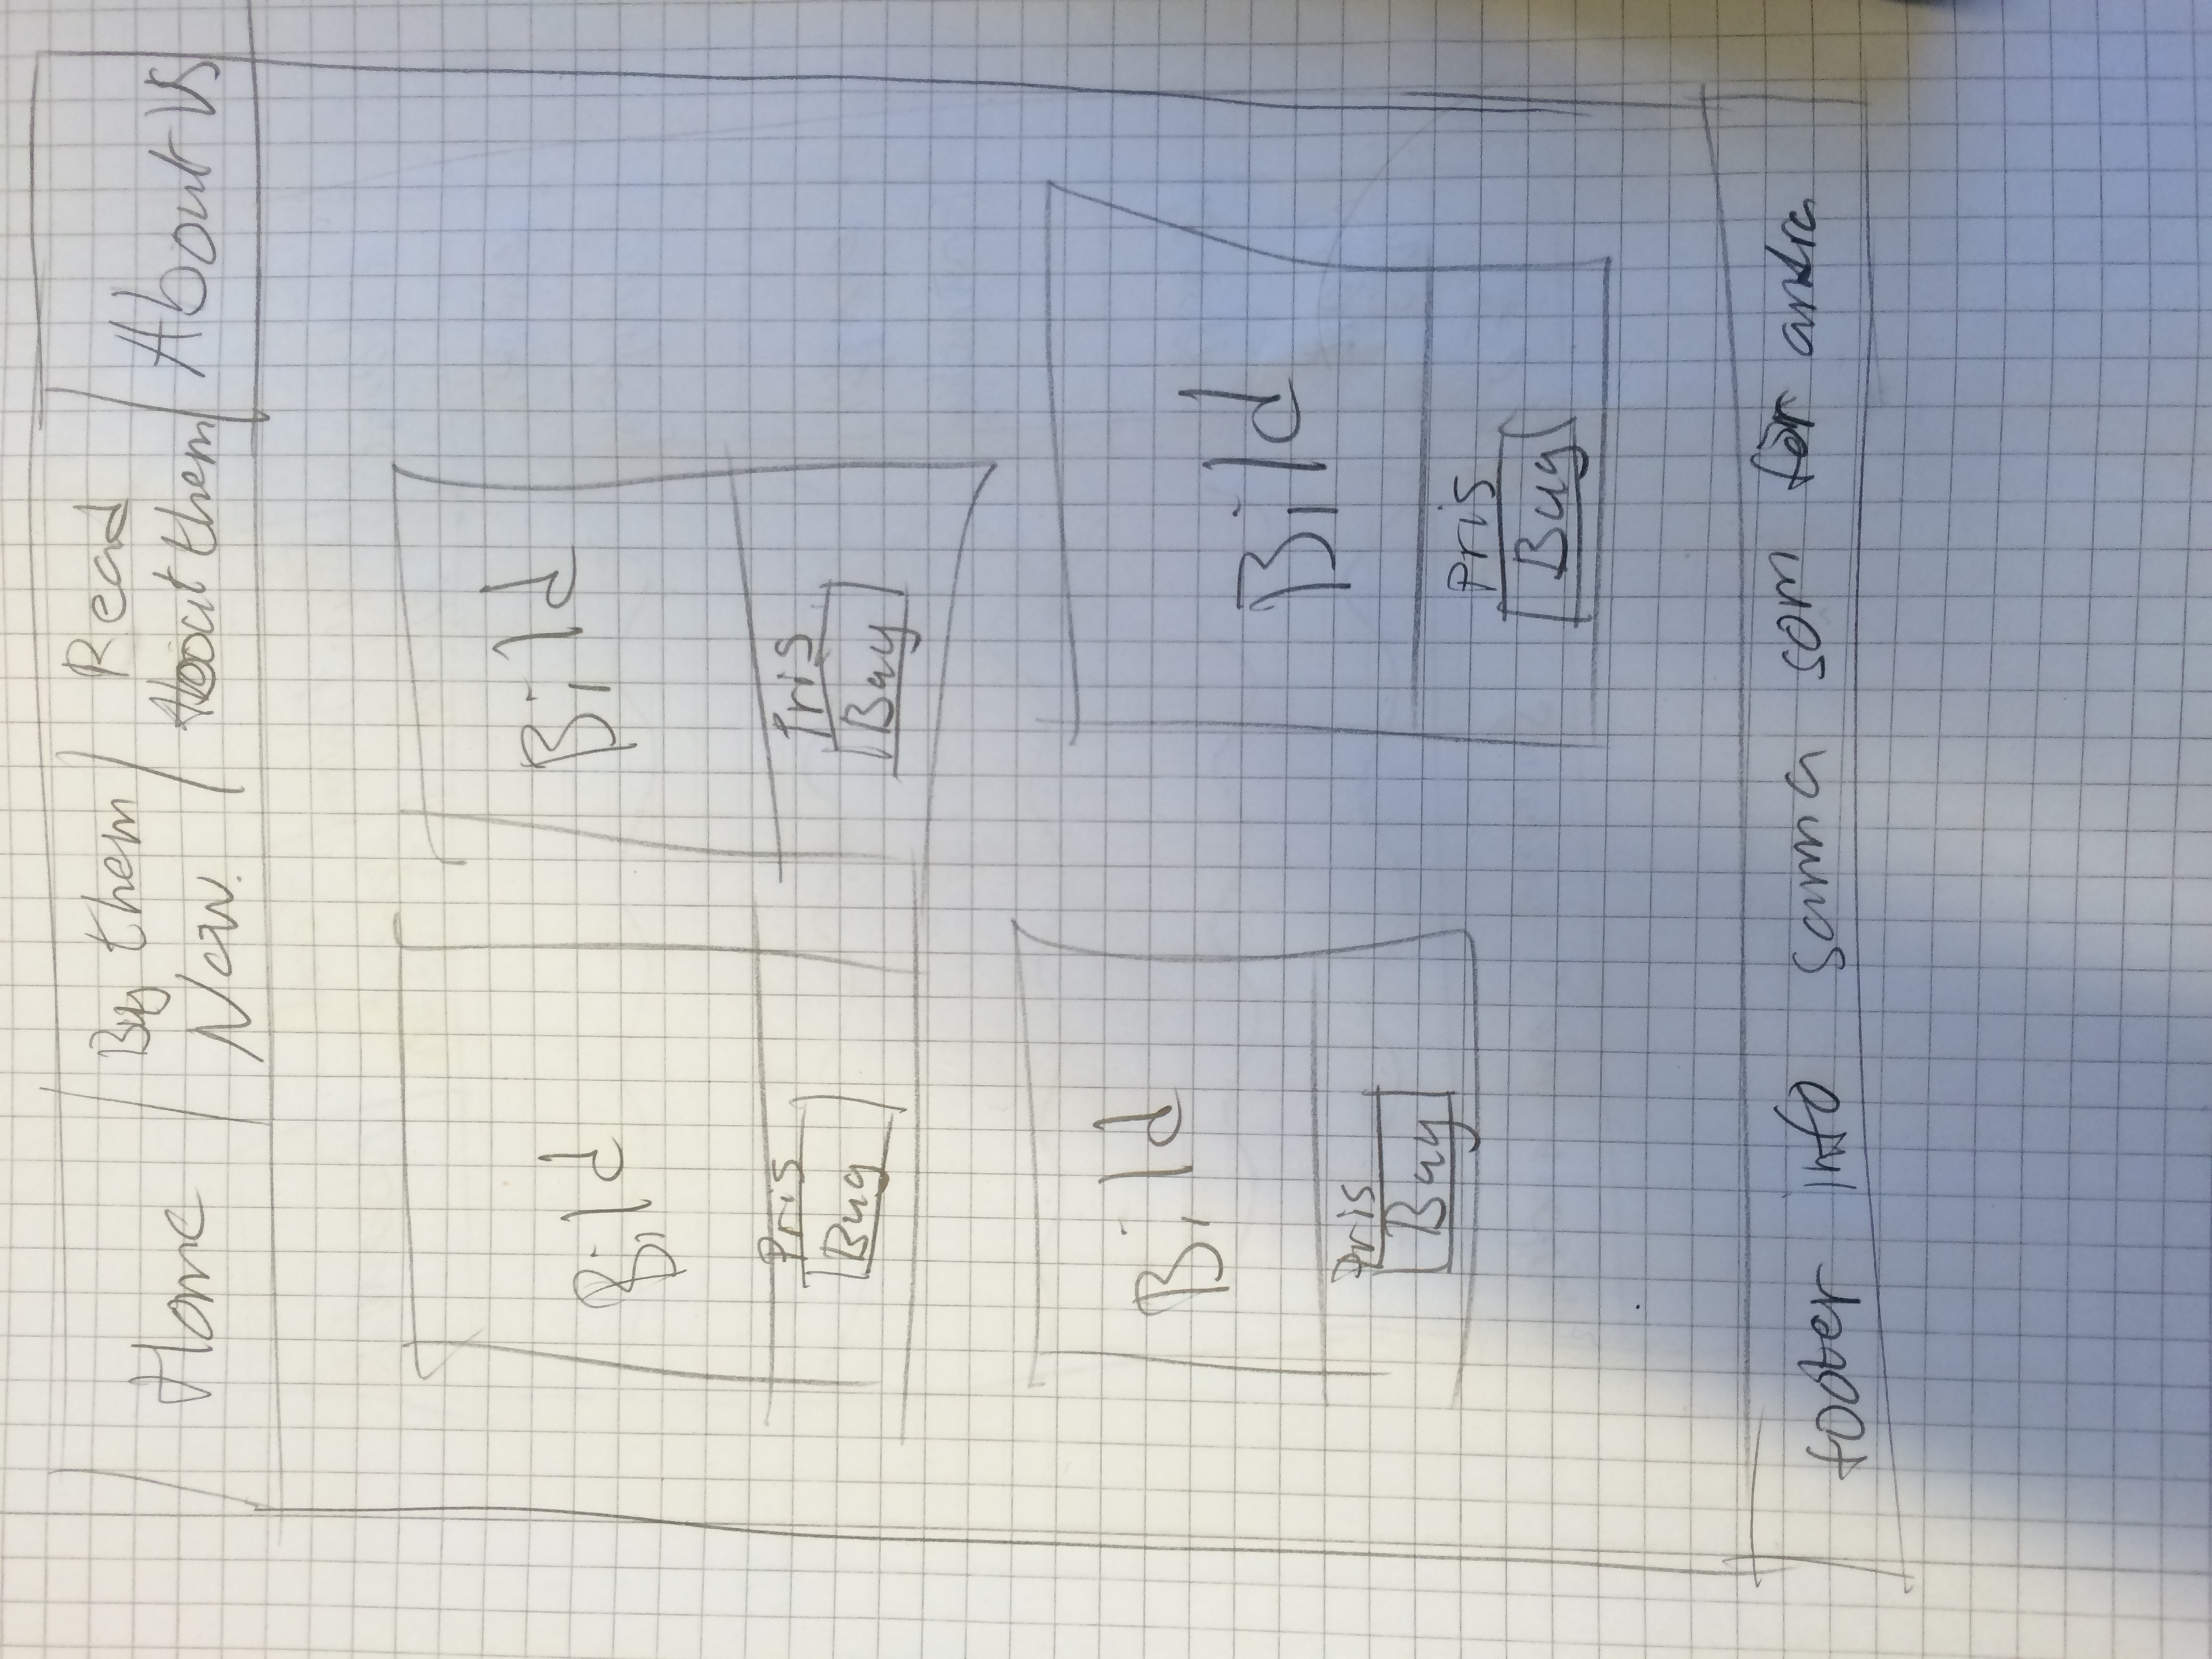 Home / By them Now. / Read About them / About Us
Bild
Pris
Buy
Bild
Pris
Buy
Bild
Pris
Buy
Bild
Pris
Buy
footer info samma som för andra